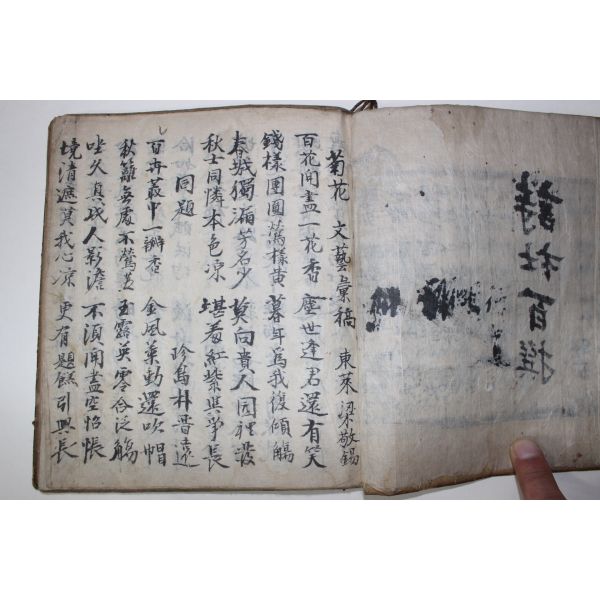 詩社百撰
菊花 文藝彙稿 東萊 梁敬錫
百花開盡一花香 塵世逢君還有笑
錢樣團圓萬樣黃 暮年爲我復傾觴
春城獨漏芳名少 莫向貴人園裡設
秋士同憐本色凉 堪羞紅紫與爭長
同題 珍島 朴晋遠
百卉叢中一瓣香 金風葉動還吹帽
秋籬無處不鶯黃 玉露英零合泛觴
坐久真成人影澹 不須開盡空怊悵
境清遮莫我心凉 更有題餻引興長